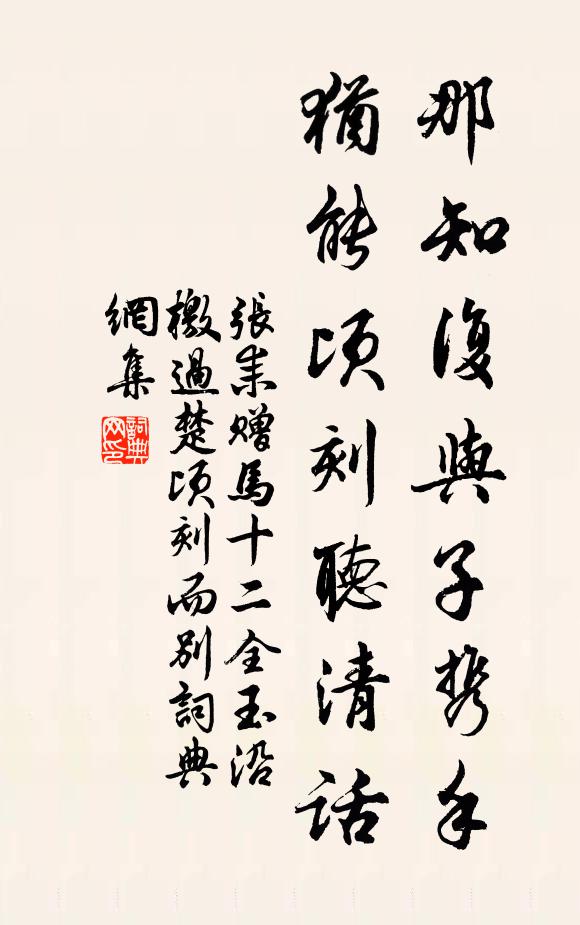 那知復與子携手
猶能頃刻聽清話
張耒贈馬十二全玉沿
檄過楚頃刻而別詞典
網集
詞典
网印